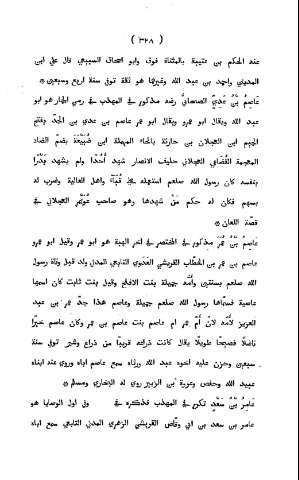 (٣٢٨)
عنه الحكم بن عتيبة بالمثناة فوق وابو اسحاق السبيعي قال علي ابن
المديني واحمد بن عبد الله وغيرهما هو ثقة توفي سنة اربع وسبعين*
عَاصِمُ بْنُ عَدِيّ الصحابيّ رضه مذكور في المهذب في رمي الجمار هو ابو
عبد الله ويقال ابو عمرو ويقال ابو عمر عاصم بن عدي بن الجد بفتح
الجيم ابن العجلان بن حارثة بالحاء المهملة ابن ضُبَيْعَة بضم الضاد
المعجمة القُضَاعِي العجلاني حليف الانصار شهد أُحُدًا ولم يشهد بَدْرًا
بنفسه كان رسول الله صلعم استعمله على قُبَاء واهل العالية وضرب له
بسهم فكان له حكم مَنْ شهدها وهو صاحب عُوَيْمِر العجلاني في
قصّة اللعان*
عَاصِمُ بْنُ عُمَر مذكور في المختصر في اخر الهبة هو ابو عمر وقيل ابو عمرو
عاصم بن عمر بن الخطاب القريشي العَدَوِي التابعي المدني ولد قبل وفاة رسول
الله صلعم بسنتين وأمّه جميلة بنت ثابت بن ابي الاقلح وقيل بنت ثابت كان اسمها
عاصية فسمّاها رسول الله صلعم جميلة وعاصم هذا جدّ عمر بن عبد
العزيز لأُمّه لأنّ أُمّ عمر ام عاصم بنت عاصم بن عمر وكان عاصم خيرًا
فاضلًا فصيحًا طويلًا يقال كانت ذراعه قريبًا من ذراع وشبر توفي سنة
سبعين وحزن عليه اخوه عبد الله ورثاه سمع عاصم اباه وروى عنه ابناه
عبيد الله وحفص وعروة بن الزبير روى له البخاري ومسلم*
عَامِرُ بْنُ سَعْدٍ تكرر في المهذب فذكره في وفي اول الوصايا هو
عامر بن سعد بن ابي وقّاص القريشي الزهري المدني التابعي سمع اباه